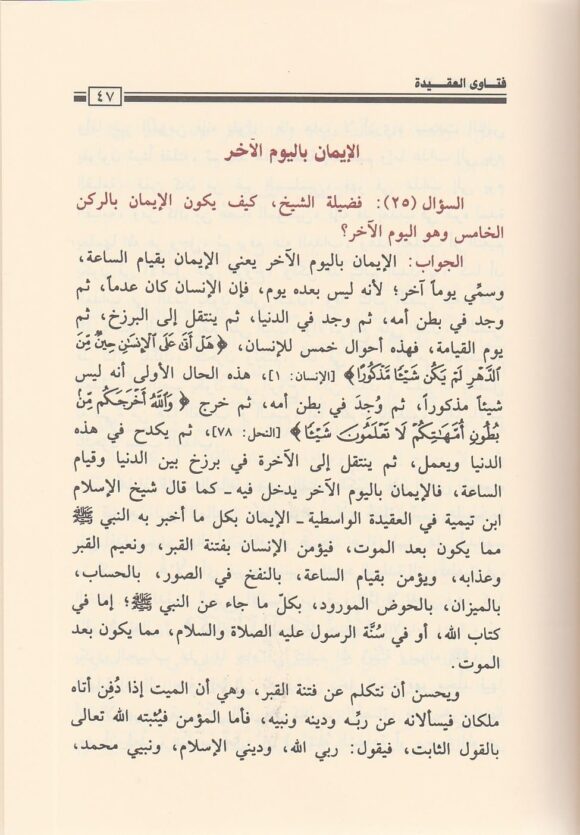 فتاوى العقيدة
٤٧
الإيمان باليوم الآخر
السؤال (٢٥): فضيلة الشيخ، كيف يكون الإيمان بالركن
الخامس وهو اليوم الآخر؟
الجواب: الإيمان باليوم الآخر يعني الإيمان بقيام الساعة،
وسمِّي يوماً آخر؛ لأنه ليس بعده يوم، فإن الإنسان كان عدماً، ثم
وجد في بطن أمه، ثم وجد في الدنيا، ثم ينتقل إلى البرزخ، ثم
يوم القيامة، فهذه أحوال خمس للإنسان، ﴿هَلْ أَتَىٰ عَلَى ٱلْإِنسَٰنِ حِينٌ مِّنَ
ٱلدَّهْرِ لَمْ يَكُن شَيْـًٔا مَّذْكُورًا﴾ [الإنسان: ١]، هذه الحال الأولى أنه ليس
شيئاً مذكوراً، ثم وُجدَ في بطن أمه، ثم خرج ﴿وَٱللَّهُ أَخْرَجَكُم مِّنۢ
بُطُونِ أُمَّهَٰتِكُمْ لَا تَعْلَمُونَ شَيْـًٔا﴾ [النحل: ٧٨]، ثم يكدح في هذه
الدنيا ويعمل، ثم ينتقل إلى الآخرة في برزخ بين الدنيا وقيام
الساعة، فالإيمان باليوم الآخر يدخل فيه ـ كما قال شيخ الإسلام
ابن تيمية في العقيدة الواسطية ـ الإيمان بكل ما أخبر به النبي ﷺ
مما يكون بعد الموت، فيؤمن الإنسان بفتنة القبر، ونعيم القبر
وعذابه، ويؤمن بقيام الساعة، بالنفخ في الصور، بالحساب،
بالميزان، بالحوض المورود، بكلّ ما جاء عن النبي ﷺ؛ إما في
كتاب الله، أو في سُنَّة الرسول عليه الصلاة والسلام، مما يكون بعد
الموت.
ويحسن أن نتكلم عن فتنة القبر، وهي أن الميت إذا دُفِن أتاه
ملكان فيسألانه عن ربِّه ودينه ونبيه، فأما المؤمن فيُثبته الله تعالى
بالقول الثابت، فيقول: ربي الله، وديني الإسلام، ونبيي محمد،